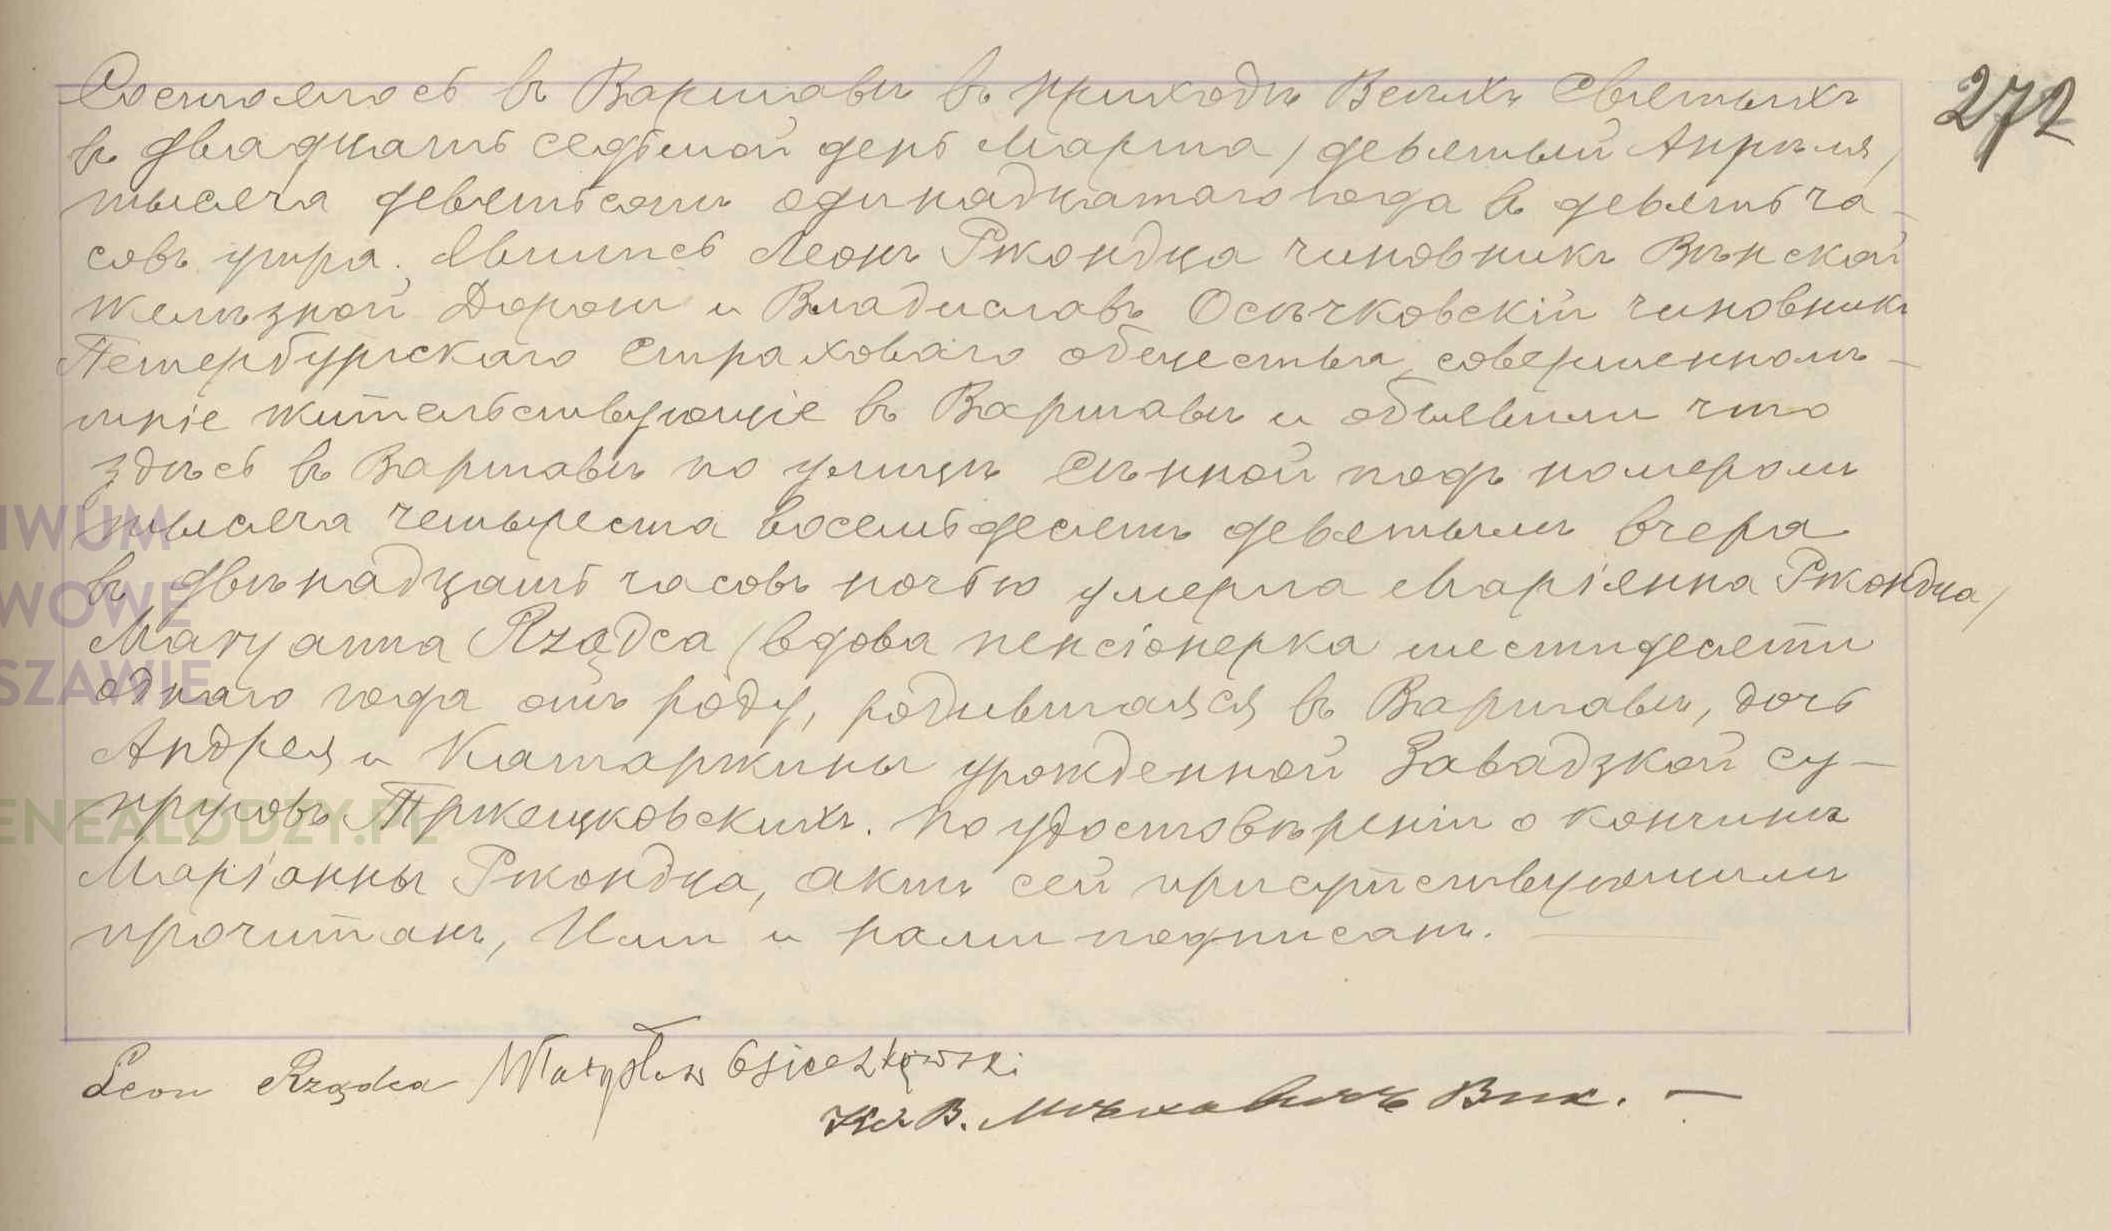 Состоялось въ Варшавѣ въ приходѣ Всѣхъ Святыхъ
272
въ двадцать седьмой день Марта / девятый Апрѣля /
тысяча девятьсотъ одинадцатаго года въ девять ча-
совъ утра. Явились Леонъ Ржондца чиновникъ Вѣнской
Желѣзной Дороги и Владиславъ Осѣчковскій чиновникъ
Петербургскаго Страховаго общества, совершеннолѣ-
тніе жительствующіе въ Варшавѣ и объявили что
здѣсь въ Варшавѣ по улицѣ Сѣнной подъ номеромъ
тысяча четыреста восемьдесятъ девятымъ вчера
въ двѣнадцать часовъ ночью умерла Маріянна Ржондца /
Maryanna Rządca / вдова пенсіонерка шестидесяти
одного года отъ роду, родившаяся въ Варшавѣ, дочь
Андрея и Катаржины урожденной Завадзкой су-
пруговъ Тржецковскихъ. По удостовѣреніи о кончинѣ
Маріанны Ржондца, актъ сей присутствующимъ
прочитанъ, Ими и нами подписанъ.
Leon Rządca Władysław Osieczkowski
Кс. В. Вик.
IWUM
WOWE
SZAWIE
ENEALODZY.PL